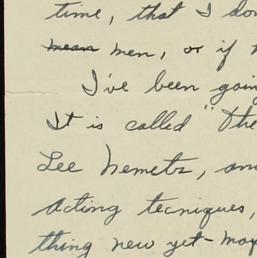 time, that I don
mean men, or if
I've been going
It is called "The
Lee Nemetz, and
acting tecniques,
thing new yet - may